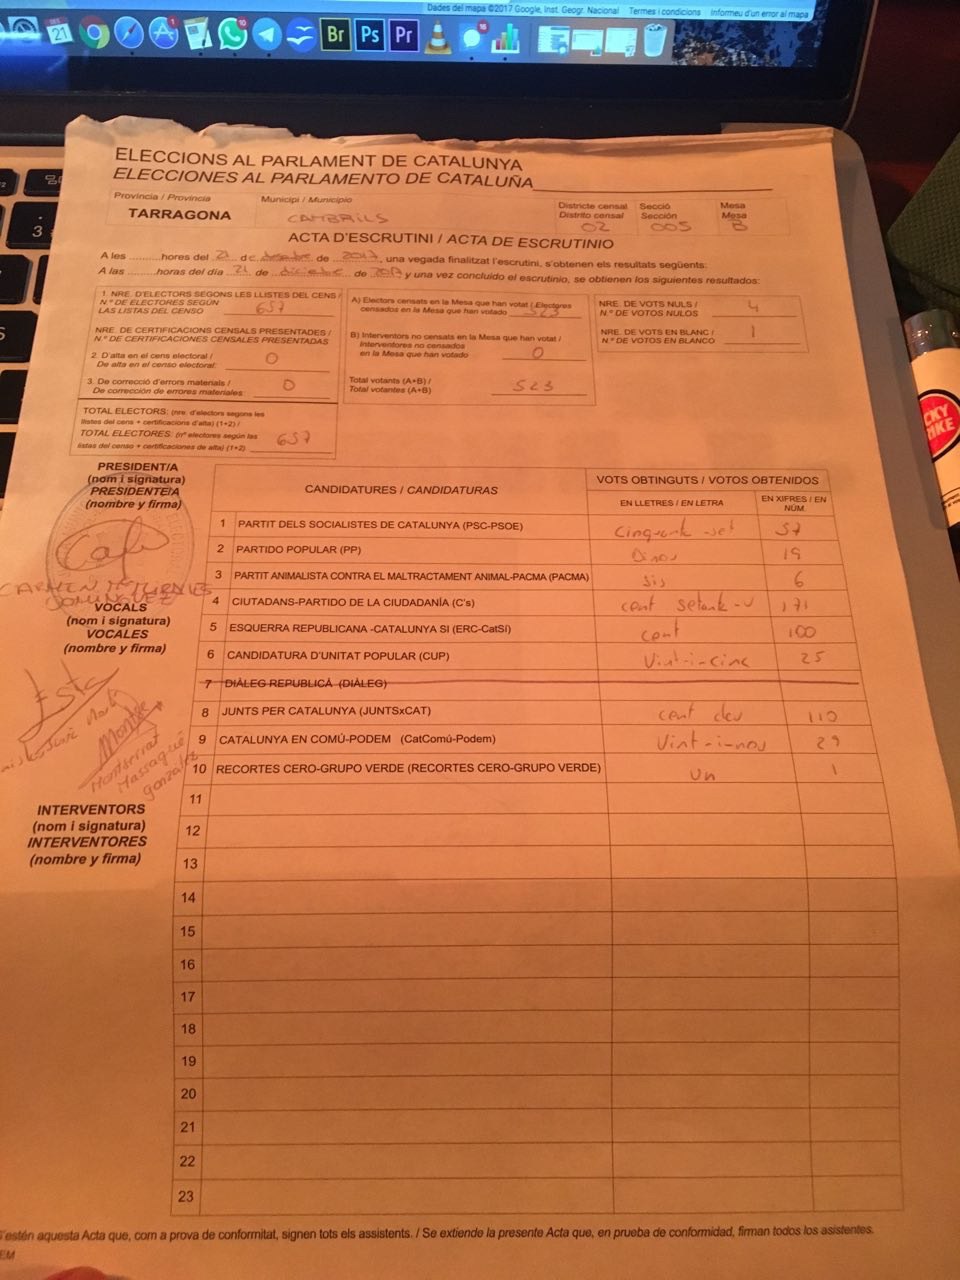 Dades del mapa ©2017 Google, Inst. Geogr. Nacional Termes i condicions Informeu d'un error al mapa
21
Br Ps Pr
ELECCIONS AL PARLAMENT DE CATALUNYA
ELECCIONES AL PARLAMENTO DE CATALUÑA
Província / Provincia Municipi / Municipio Districte censal Secció Mesa
Distrito censal Sección Mesa
TARRAGONA CAMBRILS 02 005 B
ACTA D'ESCRUTINI / ACTA DE ESCRUTINIO
A les ..........hores del 21 de desembre de 2017, una vegada finalitzat l'escrutini, s'obtenen els resultats següents:
A las ..........horas del día 21 de diciembre de 2017 y una vez concluido el escrutinio, se obtienen los siguientes resultados:
1. NRE. D'ELECTORS SEGONS LES LLISTES DEL CENS /
N.º DE ELECTORES SEGÚN
LAS LISTAS DEL CENSO 657
NRE. DE CERTIFICACIONS CENSALS PRESENTADES /
N.º DE CERTIFICACIONES CENSALES PRESENTADAS
2. D'alta en el cens electoral /
De alta en el censo electoral: 0
3. De correcció d'errors materials /
De corrección de errores materiales: 0
TOTAL ELECTORS: (nre. d'electors segons les
llistes del cens + certificacions d'alta) (1+2) /
TOTAL ELECTORES: (nº electores según las
listas del censo + certificaciones de alta) (1+2) 657
A) Electors censats en la Mesa que han votat / Electores
censados en la Mesa que han votado 523
B) Interventors no censats en la Mesa que han votat /
Interventores no censados
en la Mesa que han votado 0
Total votants (A+B) /
Total votantes (A+B) 523
NRE. DE VOTS NULS /
N.º DE VOTOS NULOS 4
NRE. DE VOTS EN BLANC /
N.º DE VOTOS EN BLANCO 1
PRESIDENT/A
(nom i signatura)
PRESIDENTE/A
(nombre y firma)
CARMEN
DOMINGUEZ
VOCALS
(nom i signatura)
VOCALES
(nombre y firma)
Montse
Montserrat
Massagué
González
INTERVENTORS
(nom i signatura)
INTERVENTORES
(nombre y firma)
CANDIDATURES / CANDIDATURAS VOTS OBTINGUTS / VOTOS OBTENIDOS
EN LLETRES / EN LETRA EN XIFRES / EN NÚM.
1 PARTIT DELS SOCIALISTES DE CATALUNYA (PSC-PSOE) Cinquanta-set 57
2 PARTIDO POPULAR (PP) Dinou 19
3 PARTIT ANIMALISTA CONTRA EL MALTRACTAMENT ANIMAL-PACMA (PACMA) sis 6
4 CIUTADANS-PARTIDO DE LA CIUDADANÍA (C's) cent setanta-u 171
5 ESQUERRA REPUBLICANA -CATALUNYA SI (ERC-CatSí) cent 100
6 CANDIDATURA D'UNITAT POPULAR (CUP) Vint-i-cinc 25
7 DIÀLEG REPUBLICÀ (DIÀLEG)
8 JUNTS PER CATALUNYA (JUNTSxCAT) cent deu 110
9 CATALUNYA EN COMÚ-PODEM (CatComú-Podem) Vint-i-nou 29
10 RECORTES CERO-GRUPO VERDE (RECORTES CERO-GRUPO VERDE) un 1
11
12
13
14
15
16
17
18
19
20
21
22
23
estén aquesta Acta que, com a prova de conformitat, signen tots els assistents. / Se extiende la presente Acta que, en prueba de conformidad, firman todos los asistentes.